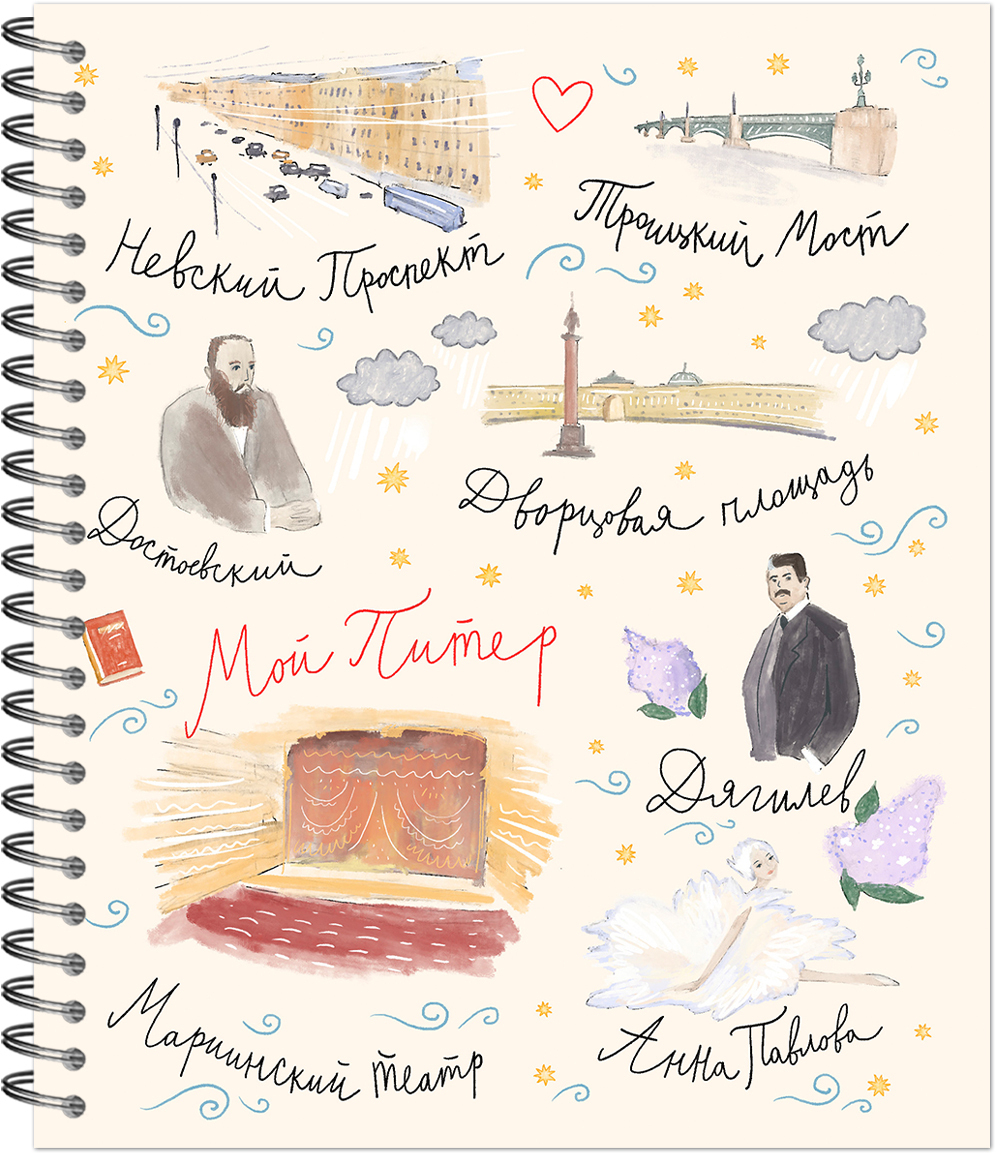 Невский Проспект
Троицкий Мост
Достоевский
Дворцовая площадь
Мой Питер
Дягилев
Мариинский театр
Анна Павлова